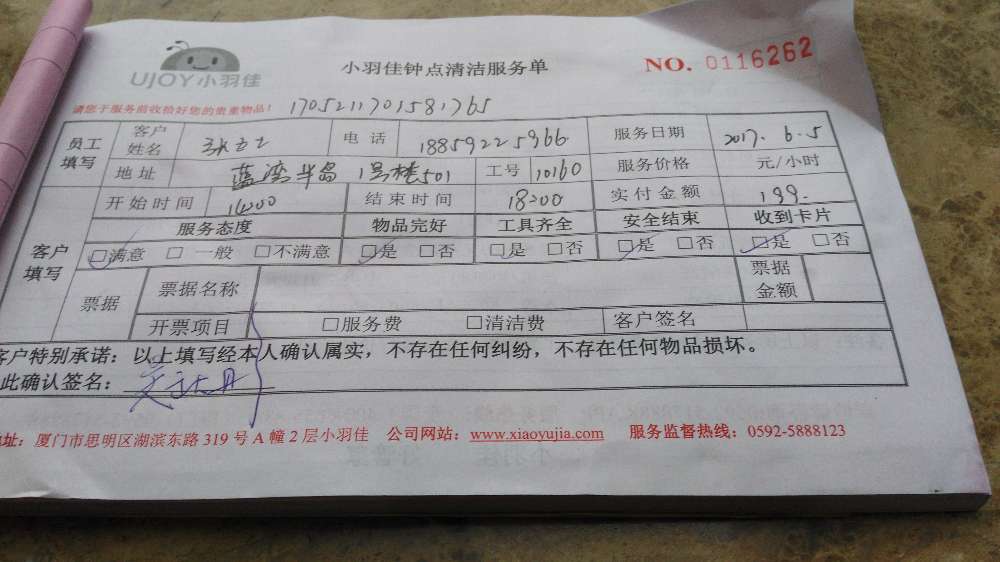 UJOY小羽佳
小羽佳钟点清洁服务单
NO. 0116262
请您于服务前收拾好您的贵重物品！ 1705211701581765
员工填写 客户姓名 电话 18859225966 服务日期 2017.6.5
地址 蓝湾半岛 1号楼501 工号 10160 服务价格 元/小时
开始时间 14:00 结束时间 18:00 实付金额 199.
客户填写 服务态度 物品完好 工具齐全 安全结束 收到卡片
□满意 □一般 □不满意 □是 □否 □是 □否 □是 □否 □是 □否
票据 票据名称 票据金额
开票项目 □服务费 □清洁费 客户签名
客户特别承诺：以上填写经本人确认属实，不存在任何纠纷，不存在任何物品损坏。
此确认签名：
地址：厦门市思明区湖滨东路 319 号 A 幢 2 层小羽佳 公司网站：www.xiaoyujia.com 服务监督热线：0592-5888123